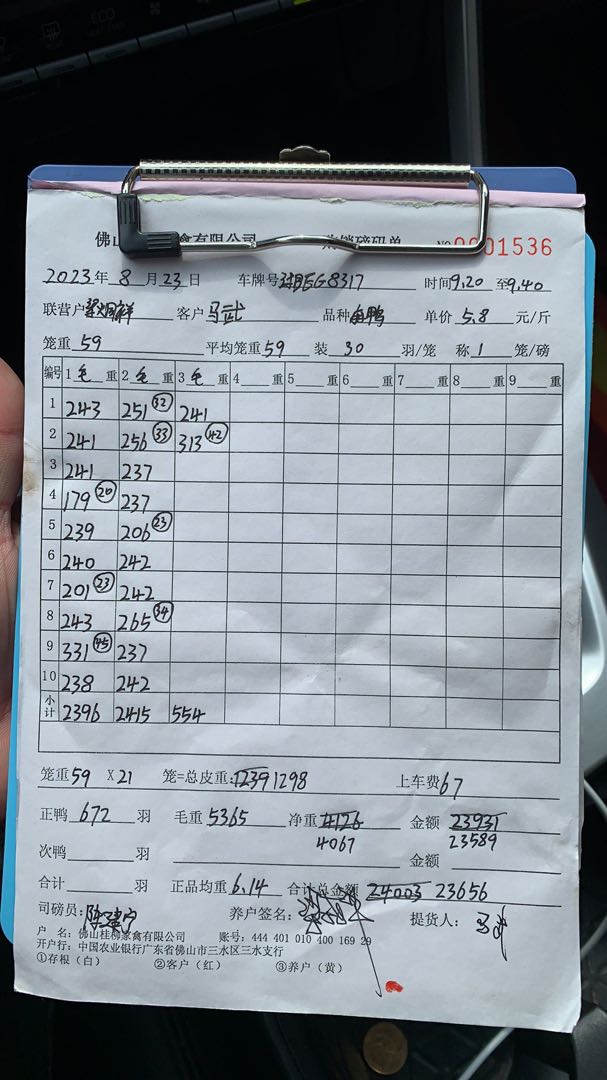 ECO
佛山 家禽有限公司 购销磅码单 NO 0001536
2023年 8 月 23 日 车牌号 EG8317 时间 9.20 至 9.40
联营户 梁润祥 客户 马武 品种 鱼鸭 单价 5.8 元/斤
笼重 59 平均笼重 59 装 30 羽/笼 称 1 笼/磅
编号 1 毛 重 2 毛 重 3 毛 重 4 重 5 重 6 重 7 重 8 重 9 重
1 243 251 32 241
2 241 256 33 313 42
3 241 237
4 179 20 237
5 239 206 23
6 240 242
7 201 23 242
8 243 265 34
9 331 45 237
10 238 242
小计 2396 2415 554
笼重 59 X 21 笼=总皮重: 1239 1298 上车费 67
正鸭 672 羽 毛重 5365 净重 4126 金额 23931
4067 23589
次鸭 羽 金额
合计 羽 正品均重 6.14 合计总金额 24003 23656
司磅员: 养户签名: 提货人:
户 名:佛山桂柳家禽有限公司 账号:444 401 010 400 169 29
开户行:中国农业银行广东省佛山市三水区三水支行
①存根(白) ②客户(红) ③养户(黄)